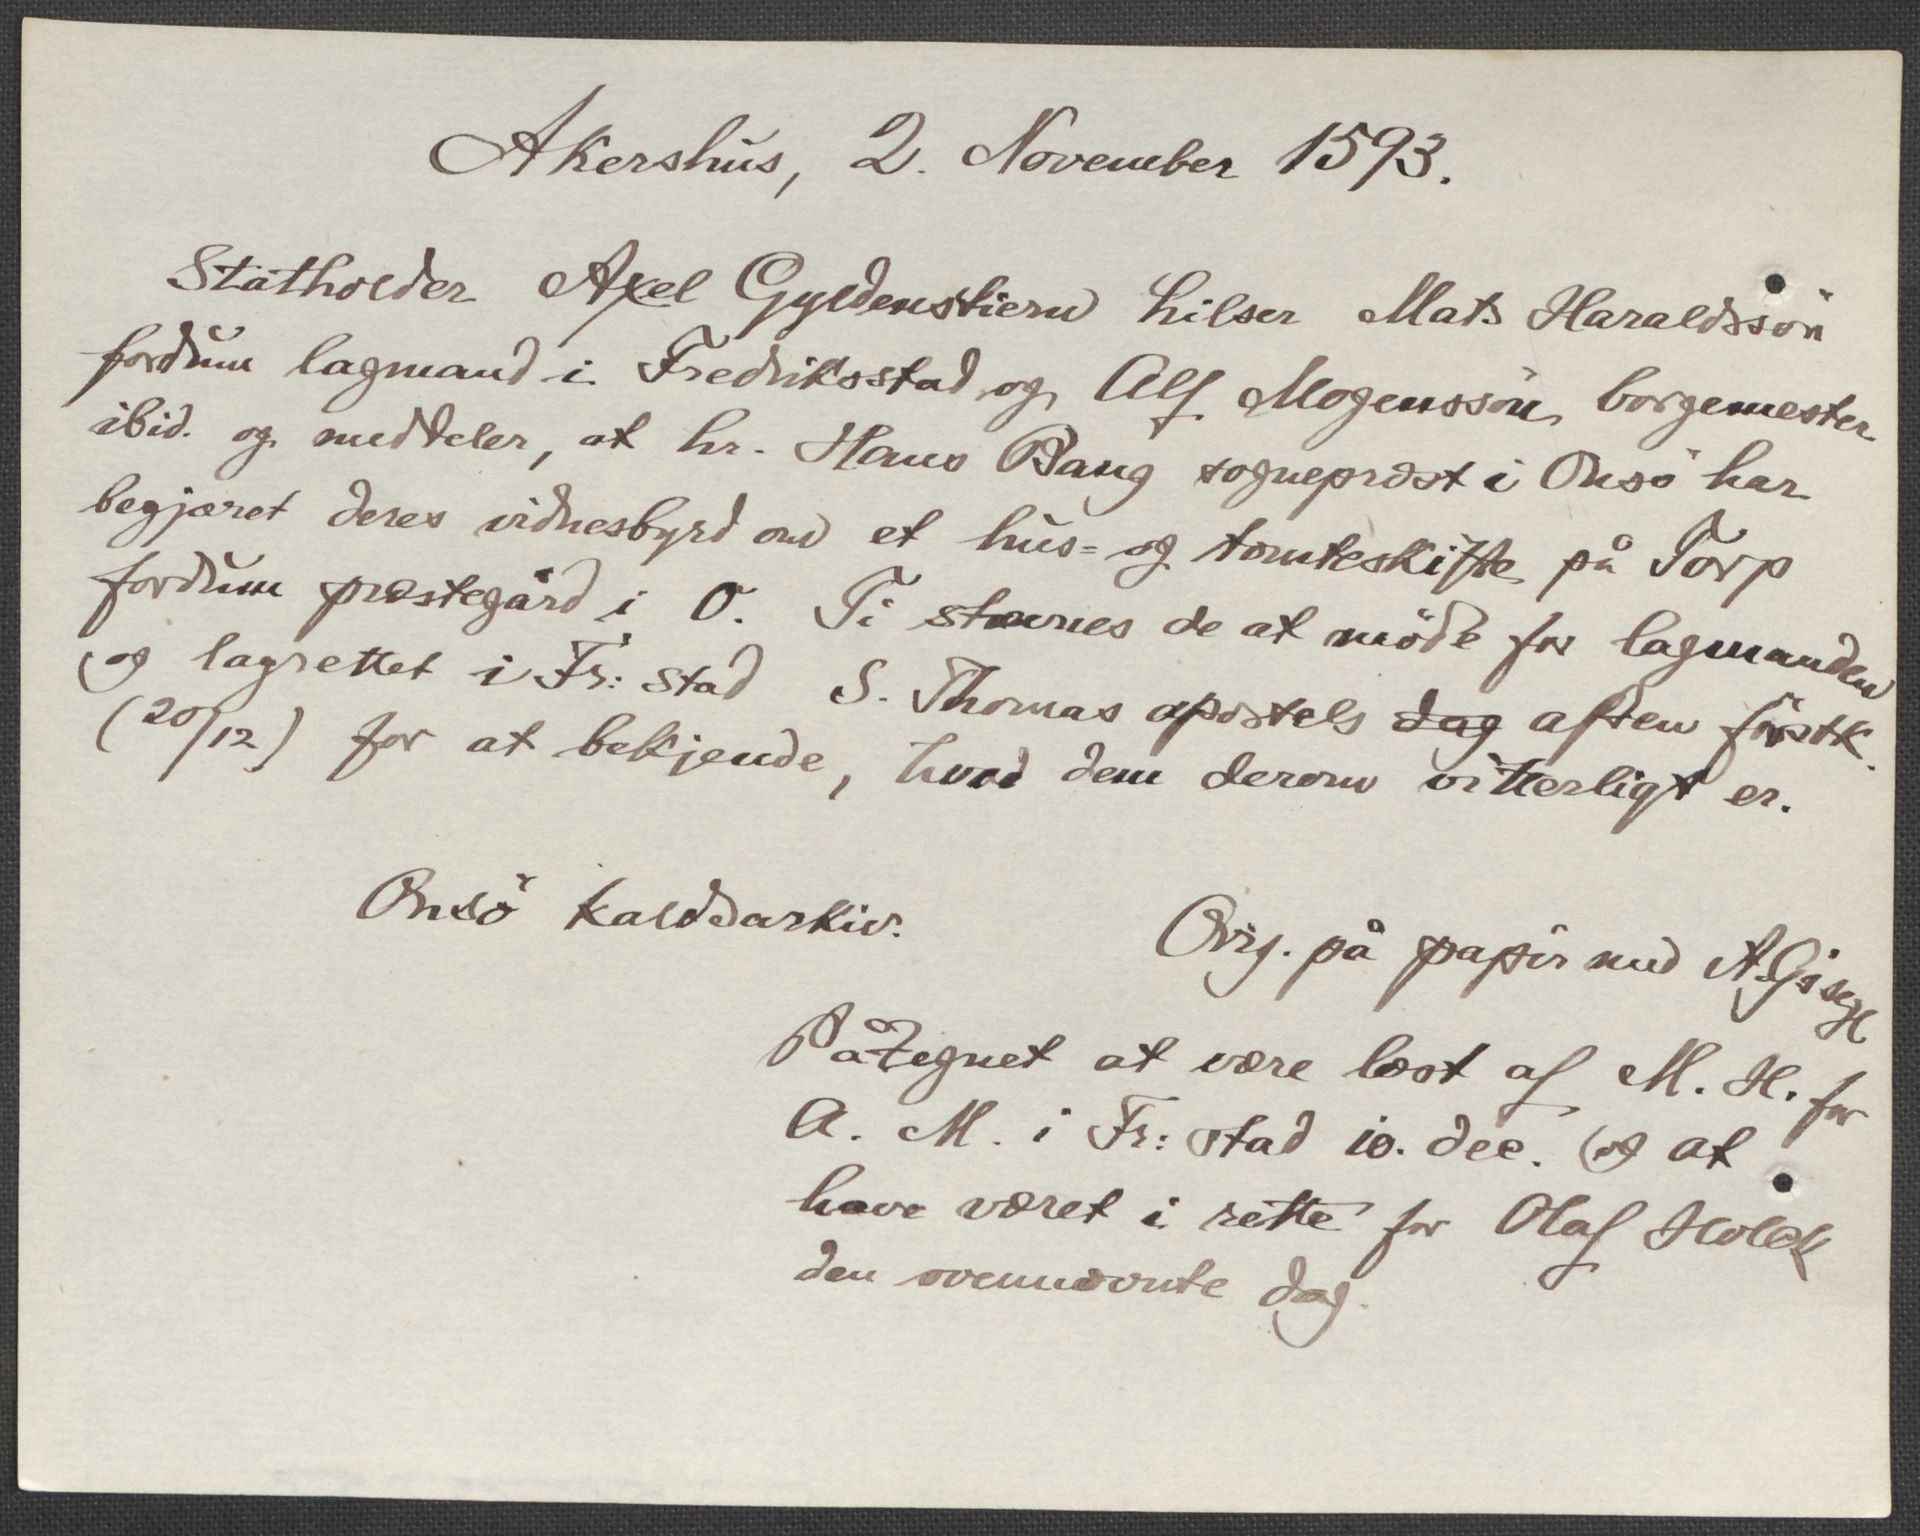 Akershus, 2. November 1593.
Statholder Axel Gyldenstiern hilser Mats Haraldssön
fordum lagmand i Fredriksstad og Alf Mogenssön borgemester
ibid. og meddeler, at hr. Hans Bang sogneprest i Onsö har
begjæret deres vidnesbyrd om et hus= og tomteskifte på Torp
fordum præstegård i O. Ti stævnes de at möde for lagmanden
og lagrettet i Fr: stad S. Thomas apostels dag aften förstk.
(20/12) for at bekjende, hvad dem derom vitterligt er.
Onsö kaldsarkiv.
Orig. på papir med A.G.s segl
Påtegnet at være læst af M. H. for
A. M. i Fr: stad 10. dec. og at
have været i rette for Olaf Holck
den ovennævnte dag.